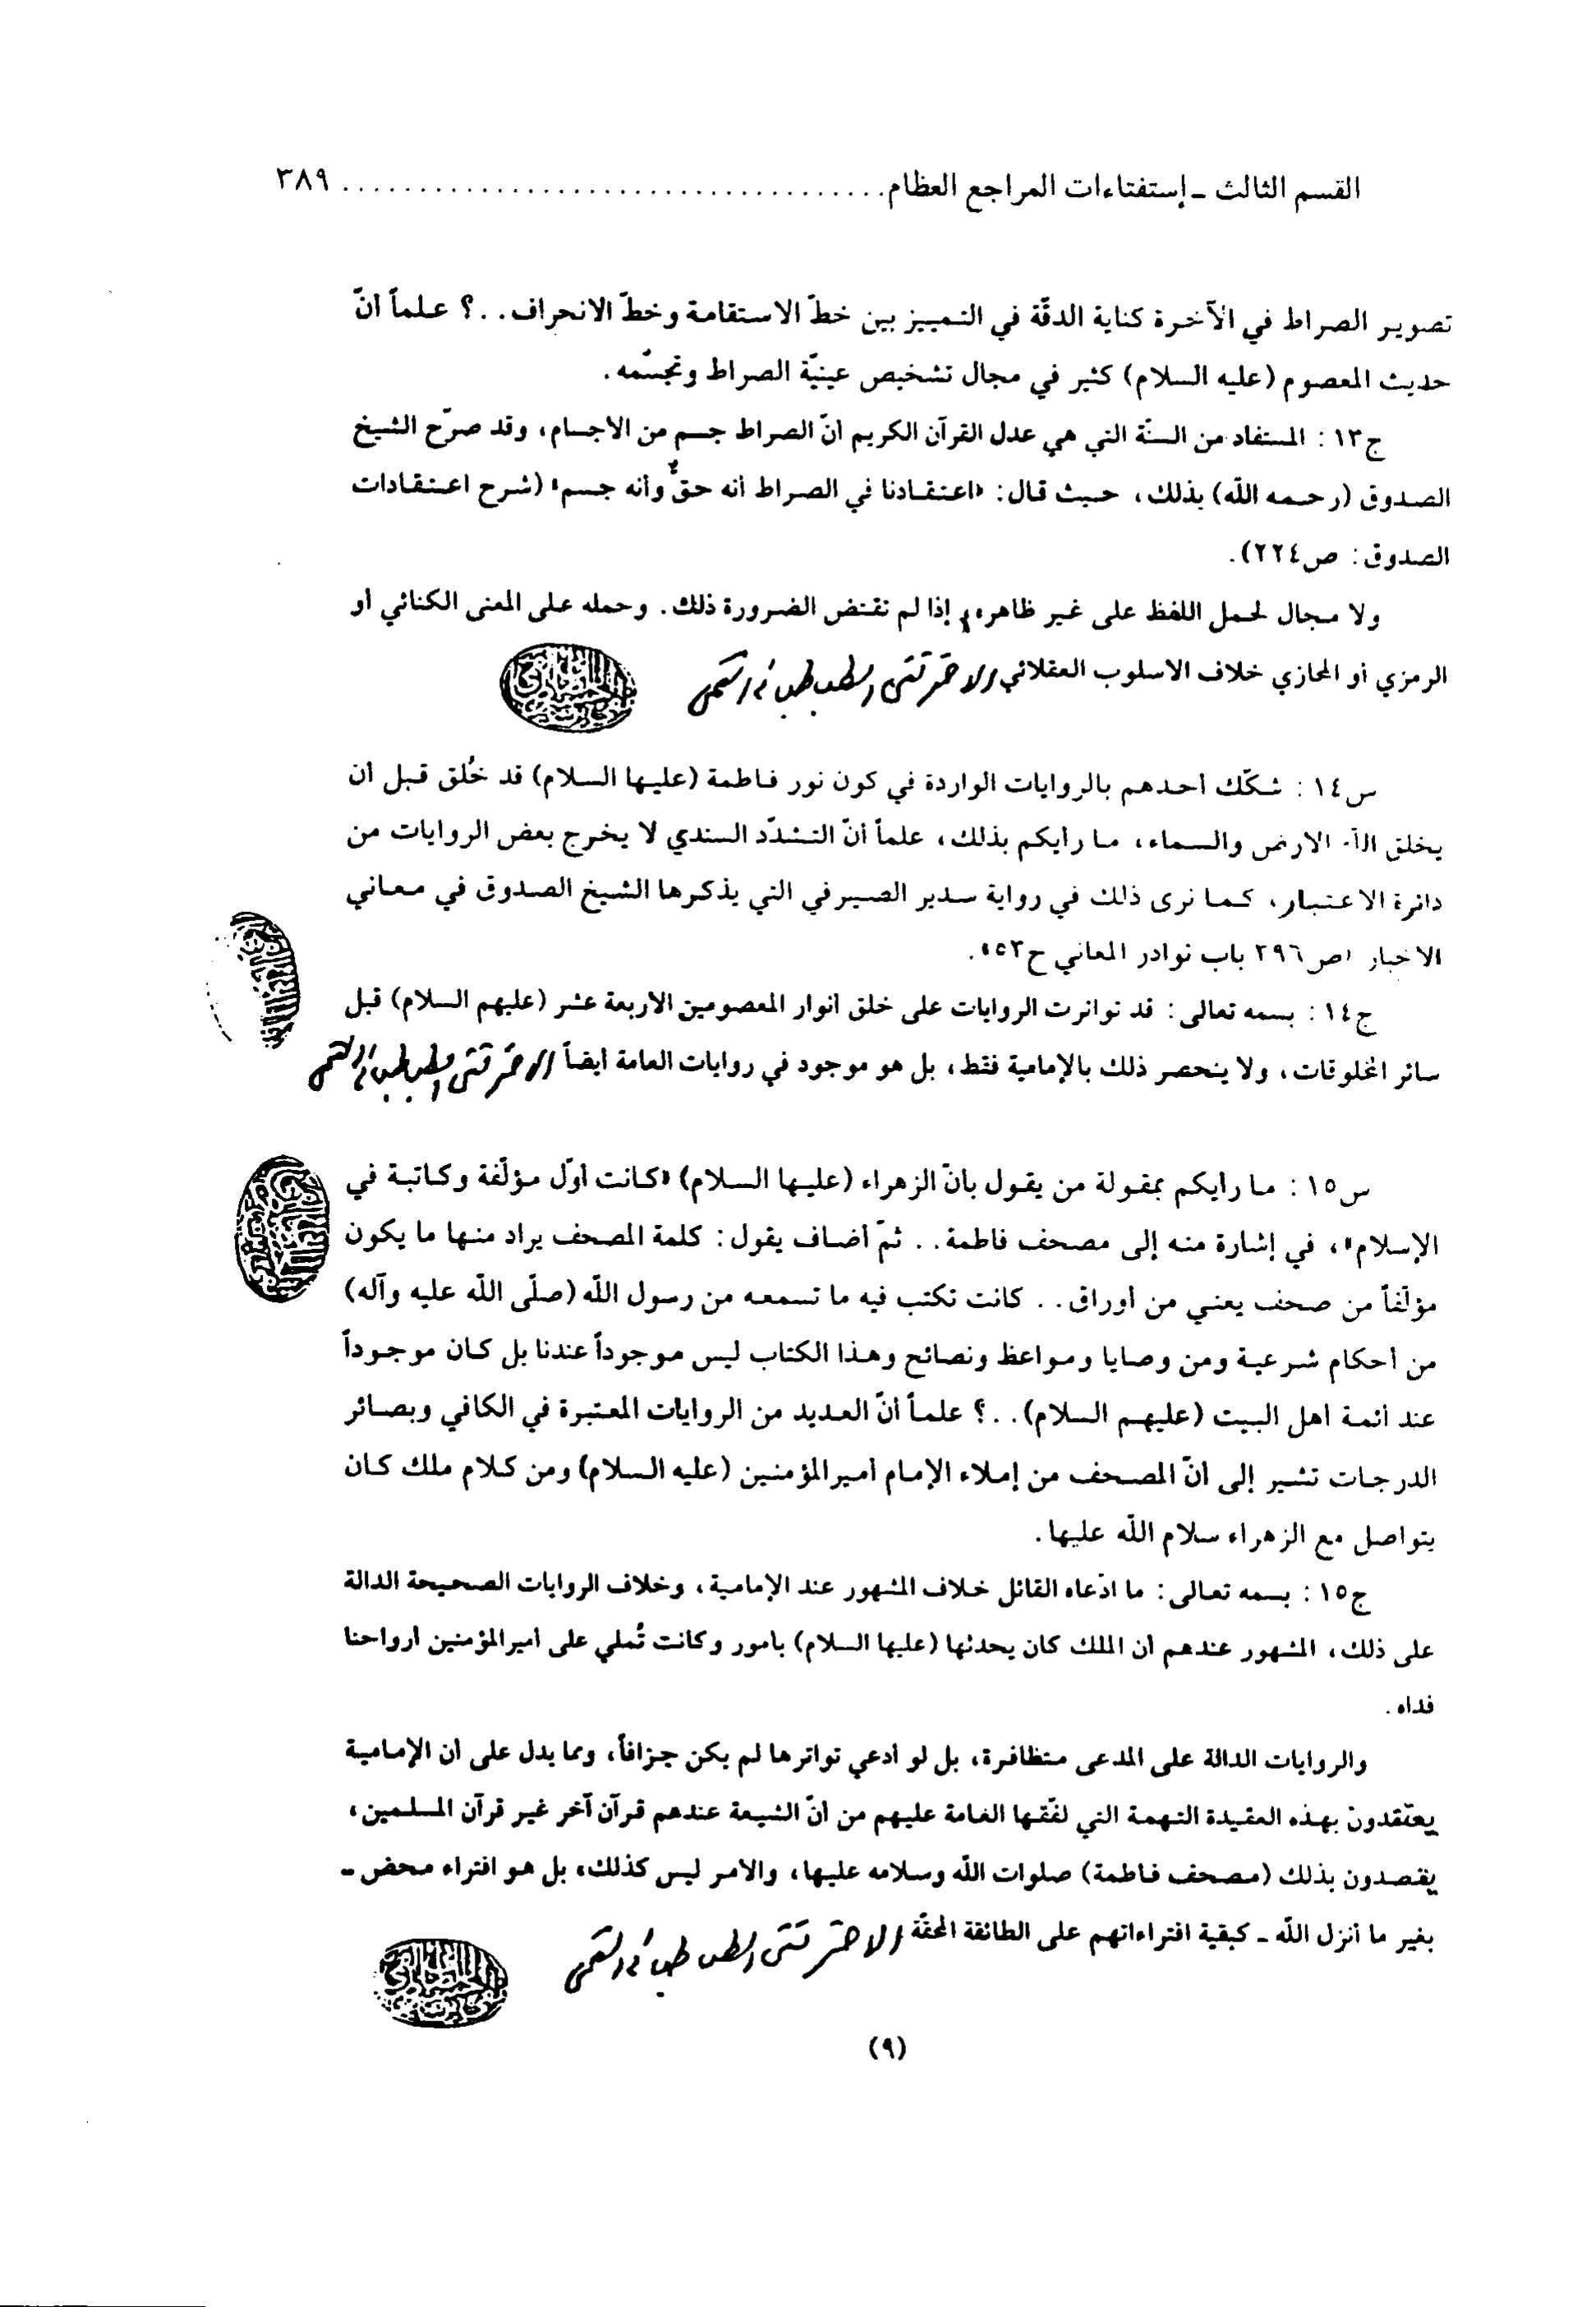 القسم الثالث ـ إستفتاءات المراجع العظام .................................... ٣٨٩
تصوير الصراط في الآخرة كناية الدقّة في التمييز بين خطّ الاستقامة وخطّ الانحراف..؟ علماً أنّ
حديث المعصوم (عليه السلام) كثير في مجال تشخيص عينيّة الصراط وتجسّمه.
ج١٣ : المستفاد من السنّة التي هي عدل القرآن الكريم أنّ الصراط جسم من الاجسام، وقد صرّح الشيخ
الصدوق (رحمه الله) بذلك، حيث قال: «اعتقادنا في الصراط أنه حقٌّ وأنه جسم» (شرح اعتقادات
الصدوق: ص٢٢٤).
ولا مجال لحمل اللفظ على غير ظاهره، إذا لم تقتض الضرورة ذلك. وحمله على المعنى الكنائي أو
الرمزي أو المجازي خلاف الاسلوب العقلائي الاحقر تقي الطباطبائي القمي
س١٤ : شكّك احدهم بالروايات الواردة في كون نور فاطمة (عليها السلام) قد خُلق قبل ان
يخلق الله الارض والسماء، ما رأيكم بذلك، علماً أنّ التشدّد السندي لا يخرج بعض الروايات من
دائرة الاعتبار، كما نرى ذلك في رواية سدير الصيرفي التي يذكرها الشيخ الصدوق في معاني
الاخبار «ص٣٩٦ باب نوادر المعاني ح٥٣».
ج١٤ : بسمه تعالى: قد تواترت الروايات على خلق انوار المعصومين الاربعة عشر (عليهم السلام) قبل
سائر المخلوقات، ولا ينحصر ذلك بالإمامية فقط، بل هو موجود في روايات العامة ايضاً الاحقر تقي الطباطبائي القمي
س١٥ : ما رايكم بمقولة من يقول بانّ الزهراء (عليها السلام) «كانت أوّل مؤلّفة وكاتبة في
الإسلام»، في إشارة منه إلى مصحف فاطمة.. ثمّ أضاف يقول: كلمة المصحف يراد منها ما يكون
مؤلّفاً من صحف يعني من أوراق.. كانت تكتب فيه ما تسمعه من رسول الله (صلّى الله عليه وآله)
من أحكام شرعية ومن وصايا ومواعظ ونصائح وهذا الكتاب ليس موجوداً عندنا بل كان موجوداً
عند ائمة اهل البيت (عليهم السلام)..؟ علماً أنّ العديد من الروايات المعتبرة في الكافي وبصائر
الدرجات تشير إلى أنّ المصحف من إملاء الإمام اميرالمؤمنين (عليه السلام) ومن كلام ملك كان
يتواصل مع الزهراء سلام الله عليها.
ج١٥ : بسمه تعالى: ما ادّعاه القائل خلاف المشهور عند الإمامية، وخلاف الروايات الصحيحة الدالة
على ذلك، المشهور عندهم ان الملك كان يحدثها (عليها السلام) بامور وكانت تُملي على اميرالمؤمنين ارواحنا
فداه.
والروايات الدالة على المدعى متظافرة، بل لو أدعي تواترها لم يكن جزافاً، ومما يدل على ان الإمامية
يعتقدون بهذه العقيدة التهمة التي لفّقها العامة عليهم من انّ الشيعة عندهم قرآن آخر غير قرآن المسلمين،
يقصدون بذلك (مصحف فاطمة) صلوات الله وسلامه عليها، والامر ليس كذلك، بل هو افتراء محض ـ
بغير ما أنزل الله ـ كبقية افتراءاتهم على الطائفة المحقّة الاحقر تقي الطباطبائي القمي
(٩)